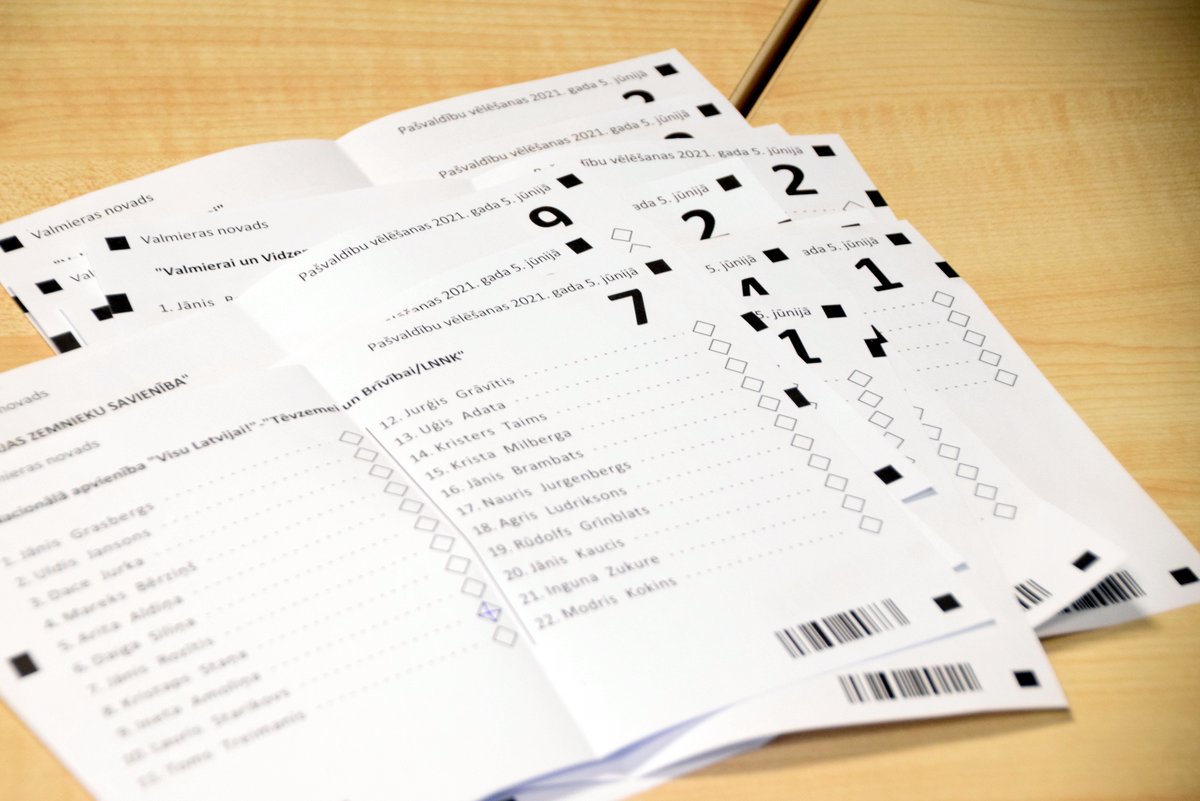 Pašvaldību vēlēšanas 2021. gada 5. jūnijā
2
Pašvaldību vēlēšanas 2021. gada 5. jūnijā
Valmieras novads
dību vēlēšanas 2021. gada 5. jūnijā
2
Valmieras novads
"Valmierai un Vidze
1. Jānis
Pašvaldību vēlēšanas 2021. gada 5. jūnijā
9
ada 5. jūnijā
2
ada 5. jūnijā
1
5. jūnijā
5. jūnijā
1
šanas 2021. gada 5. jūnijā
novads
JAS ZEMNIEKU SAVIENĪBA"
mieras novads
Pašvaldību vēlēšanas 2021. gada 5. jūnijā
7
nacionālā apvienība "Visu Latvijai!"-"Tēvzemei un Brīvībai/LNNK"
1. Jānis Grasbergs
2. Uldis Jansons
3. Dace Jurka
4. Mareks Bērziņš
5. Arita Aldiņa
6. Daiga Siliņa
7. Jānis Rozītis
8. Kristaps Stana
9. Ineta Amoliņa
10. Lauris Starikovs
11. Toms Treimanis
12. Jurģis Grāvītis
13. Uģis Adata
14. Kristers Taims
15. Krista Milberga
16. Jānis Brambats
17. Nauris Jurgenbergs
18. Agris Ludriksons
19. Rūdolfs Grīnblats
20. Jānis Kaucis
21. Inguna Zukure
22. Modris Kokins